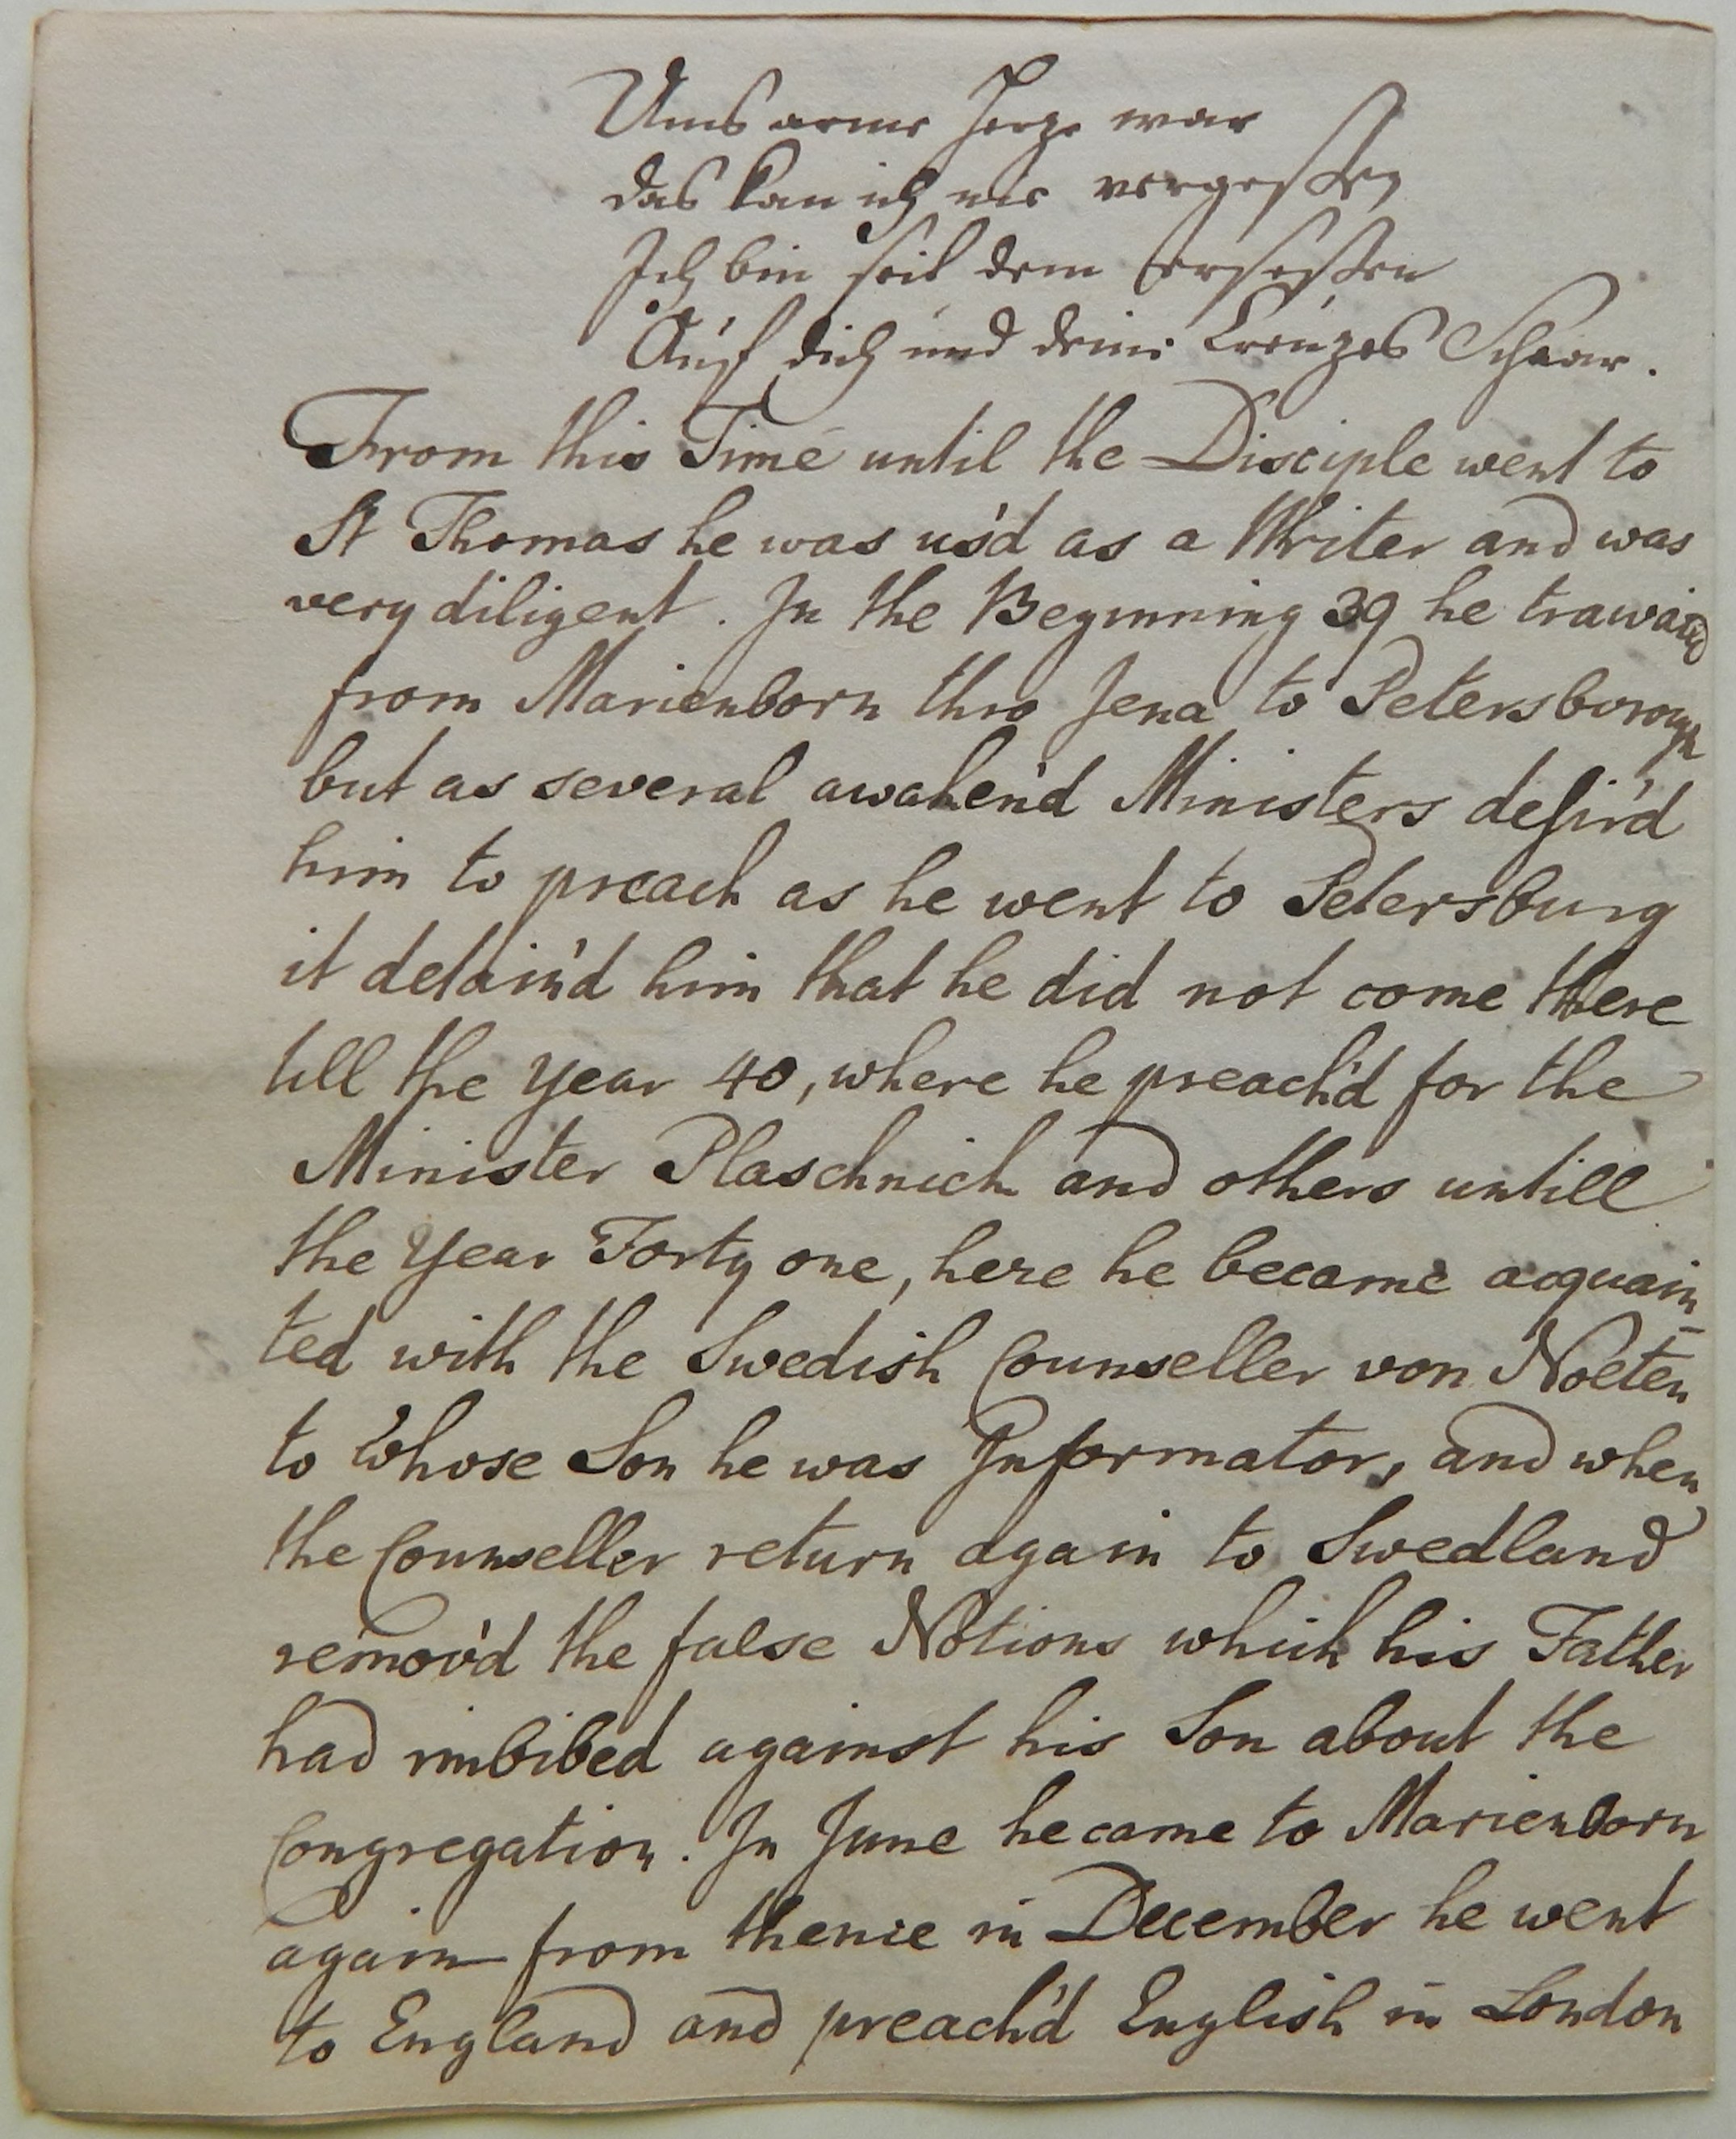 Ums arme Herze war
das kan ich nie vergeßen
Ich bin seit dem erseßen
Auf dich und deine Creuzes Schaar.
From this Time until the Disciple went to
St Thomas he was us'd as a Writer and was
very diligent. In the Beginning 39 he
from Marienborn thro Jena to Petersborough
but as several awaken'd Ministers desir'd
him to preach as he went to Petersburg
it detain'd him that he did not come there
till the year 40, where he preach'd for the
Minister Plaschnich and others untill
the Year Forty one, here he became acquain-
ted with the Swedish Counseller von Nolten
to whose Son he was Informator, and when
the Counseller return again to Swedland
remov'd the false Notions which his Father
had imbibed against his Son about the
Congregation. In June he came to Marienborn
again from thence in December he went
to England and preach'd English in London